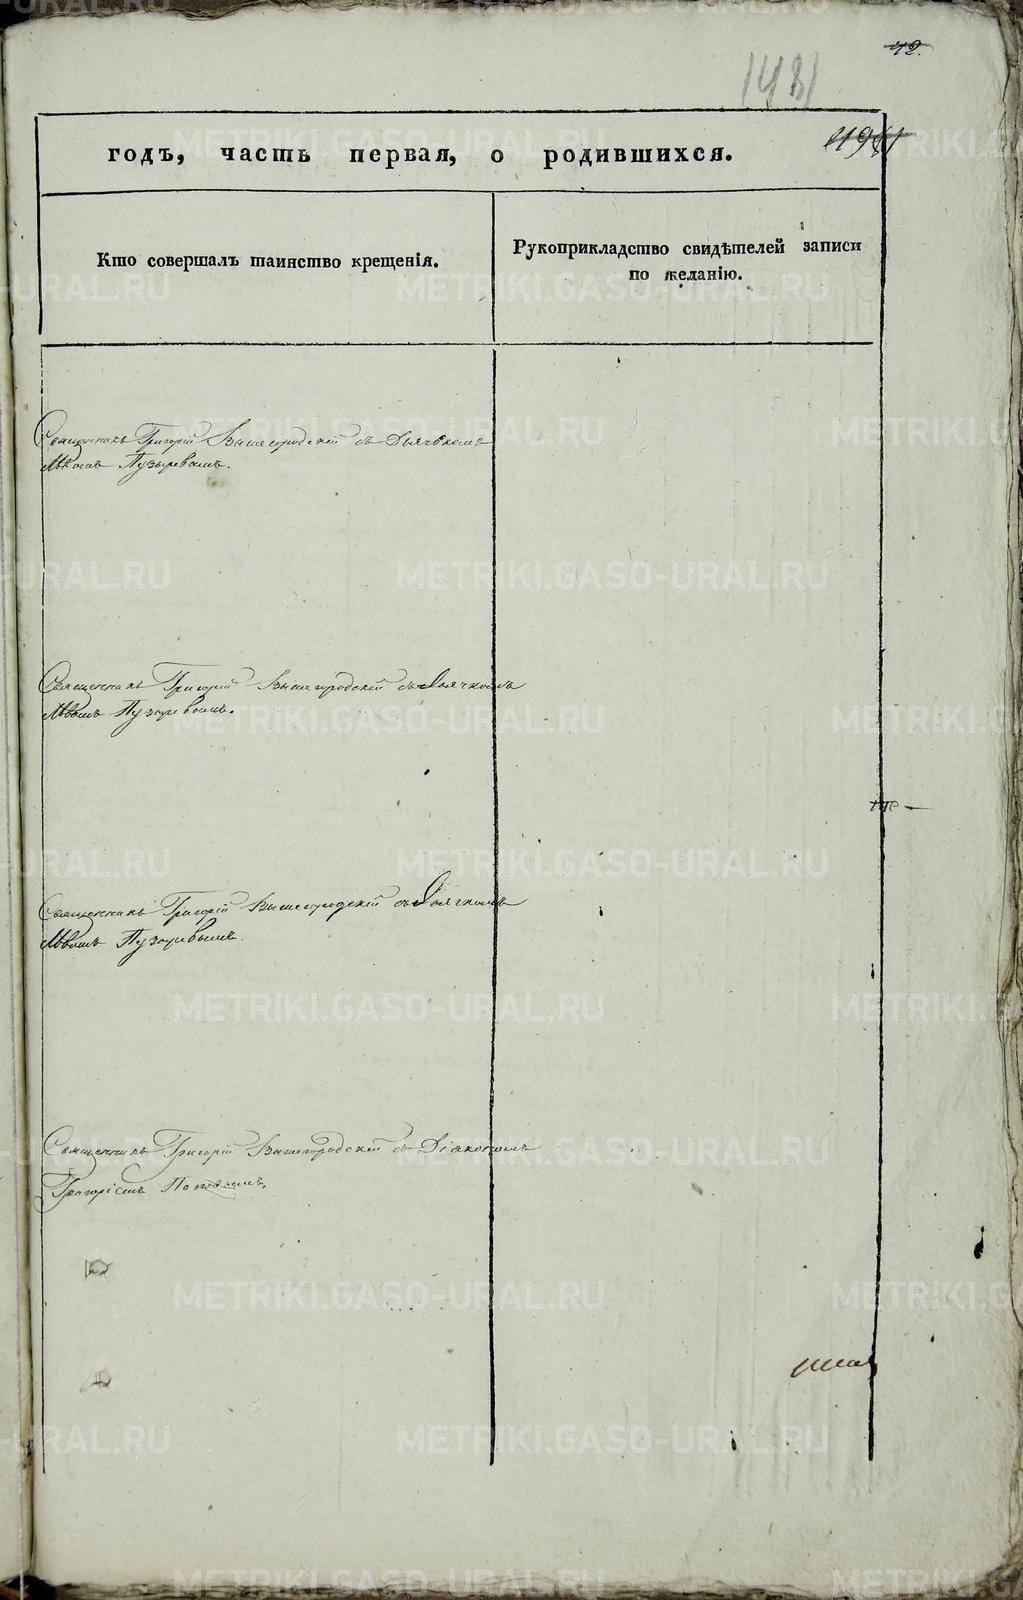 42.
1481
годъ, часть первая, о родившихся.
Кто совершалъ таинство крещенія.
Рукоприкладство свидѣтелей записи
по желанію.
Священникъ Григорій Вышегородскій съ Дьячкомъ
Львомъ Пузыревымъ.
Священникъ Григорій Вышегородскій съ Дьячкомъ
Львомъ Пузыревымъ.
Священникъ Григорій Вышегородскій съ Дьячкомъ
Львомъ Пузыревымъ.
Священникъ Григорій Вышегородскій съ Діакономъ
Григоріемъ Поповымъ.
METRIKI.GASO-URAL.RU